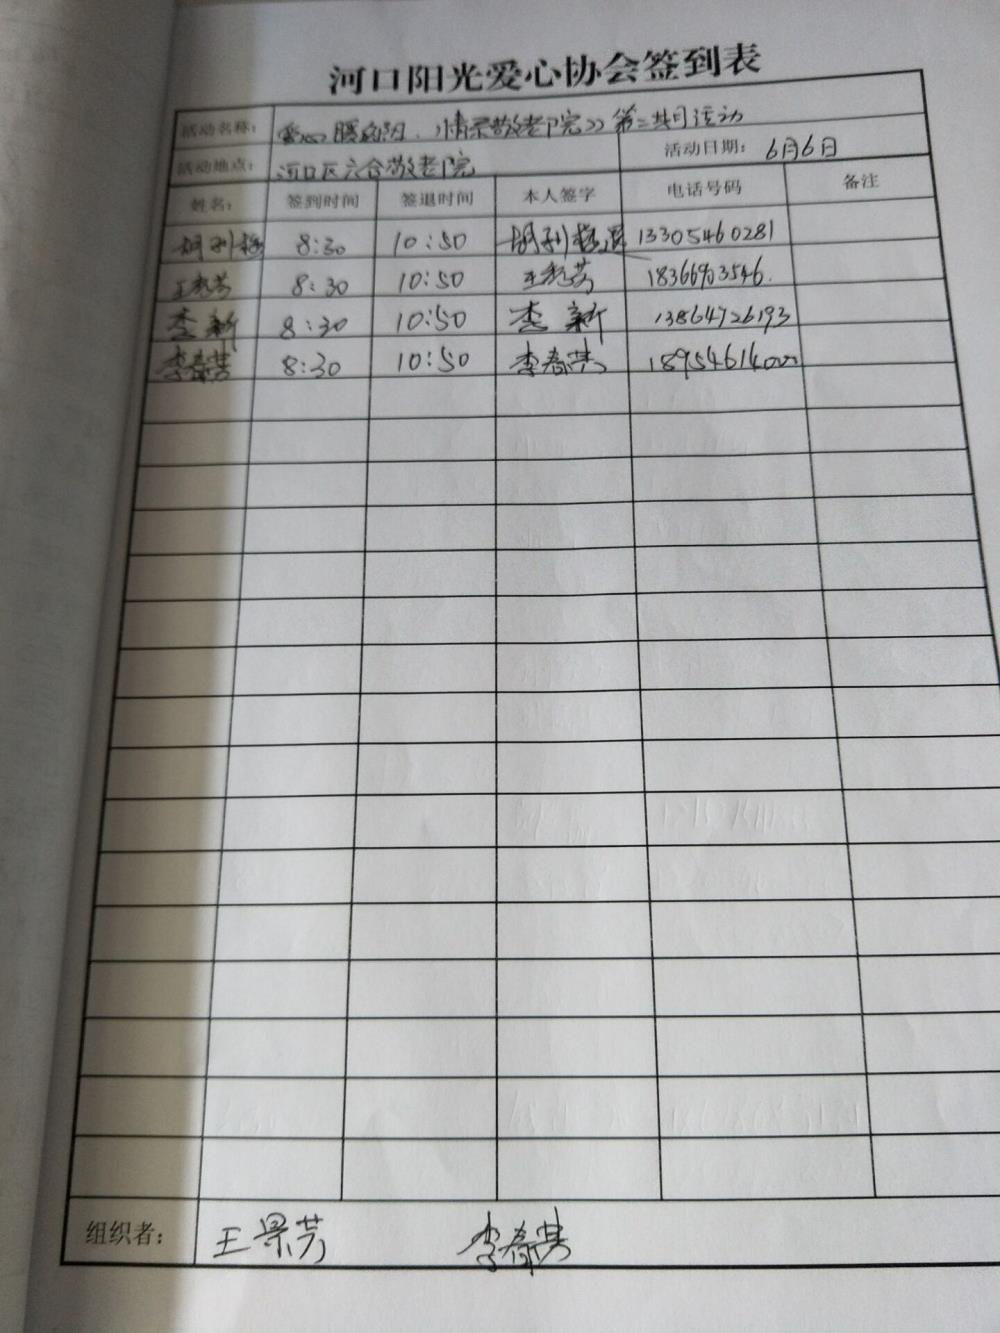 河口阳光爱心协会签到表
活动名称： 爱心暖夕阳.《情系敬老院》第三共同运动
活动地点： 河口区六合敬老院 活动日期： 6月6日
姓名： 签到时间 签退时间 本人签字 电话号码 备注
8:30 10:50 13305460281
8:30 10:50 18366903546.
李新 8:30 10:50 李新 13864726193
李春 8:30 10:50 李春 18954614000
组织者： 王景芳 李春